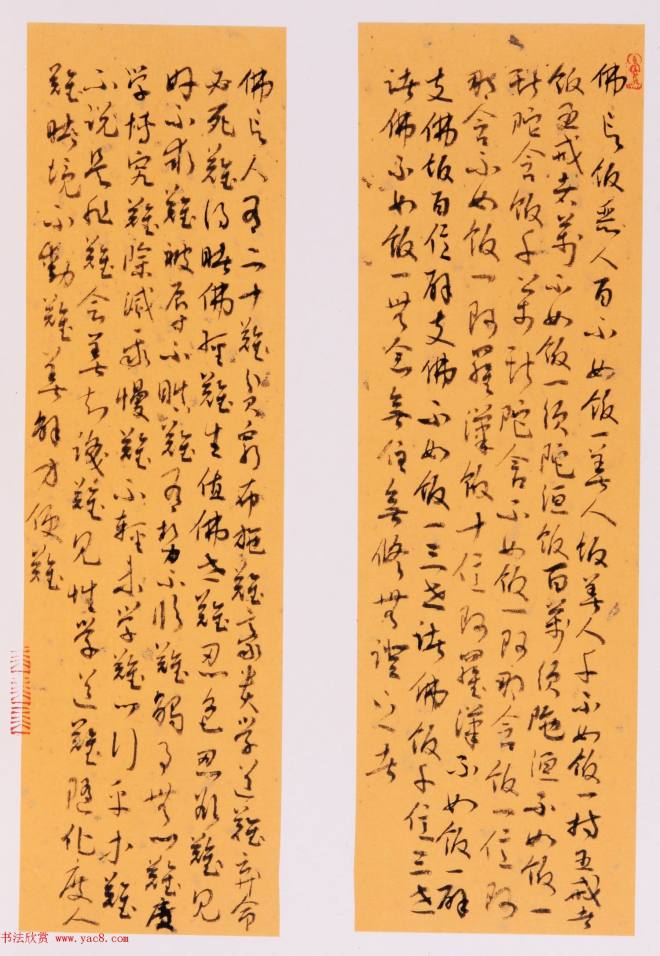 佛言飯惡人百不如飯一善人飯善人千不如飯一持五戒者
飯五戒者萬不如飯一須陀洹飯百萬須陀洹不如飯一
斯陀含飯千萬斯陀含不如飯一阿那含飯一億阿
那含不如飯一阿羅漢飯十億阿羅漢不如飯一辟
支佛飯百億辟支佛不如飯一三世諸佛飯千億三世
諸佛不如飯一無念無住無修無證之者
佛言人有二十難貧窮布施難豪貴学道難棄命
必死難得睹佛經難生值佛世難忍色忍欲難見
好不求難被辱不瞋難有勢不臨難觸事無心難廣
学博究難除滅我慢難不輕未学難心行平等難
不說是非難會善知識難見性学道難隨化度人
難睹境不動難善解方便難
书法欣赏 www.yac8.com